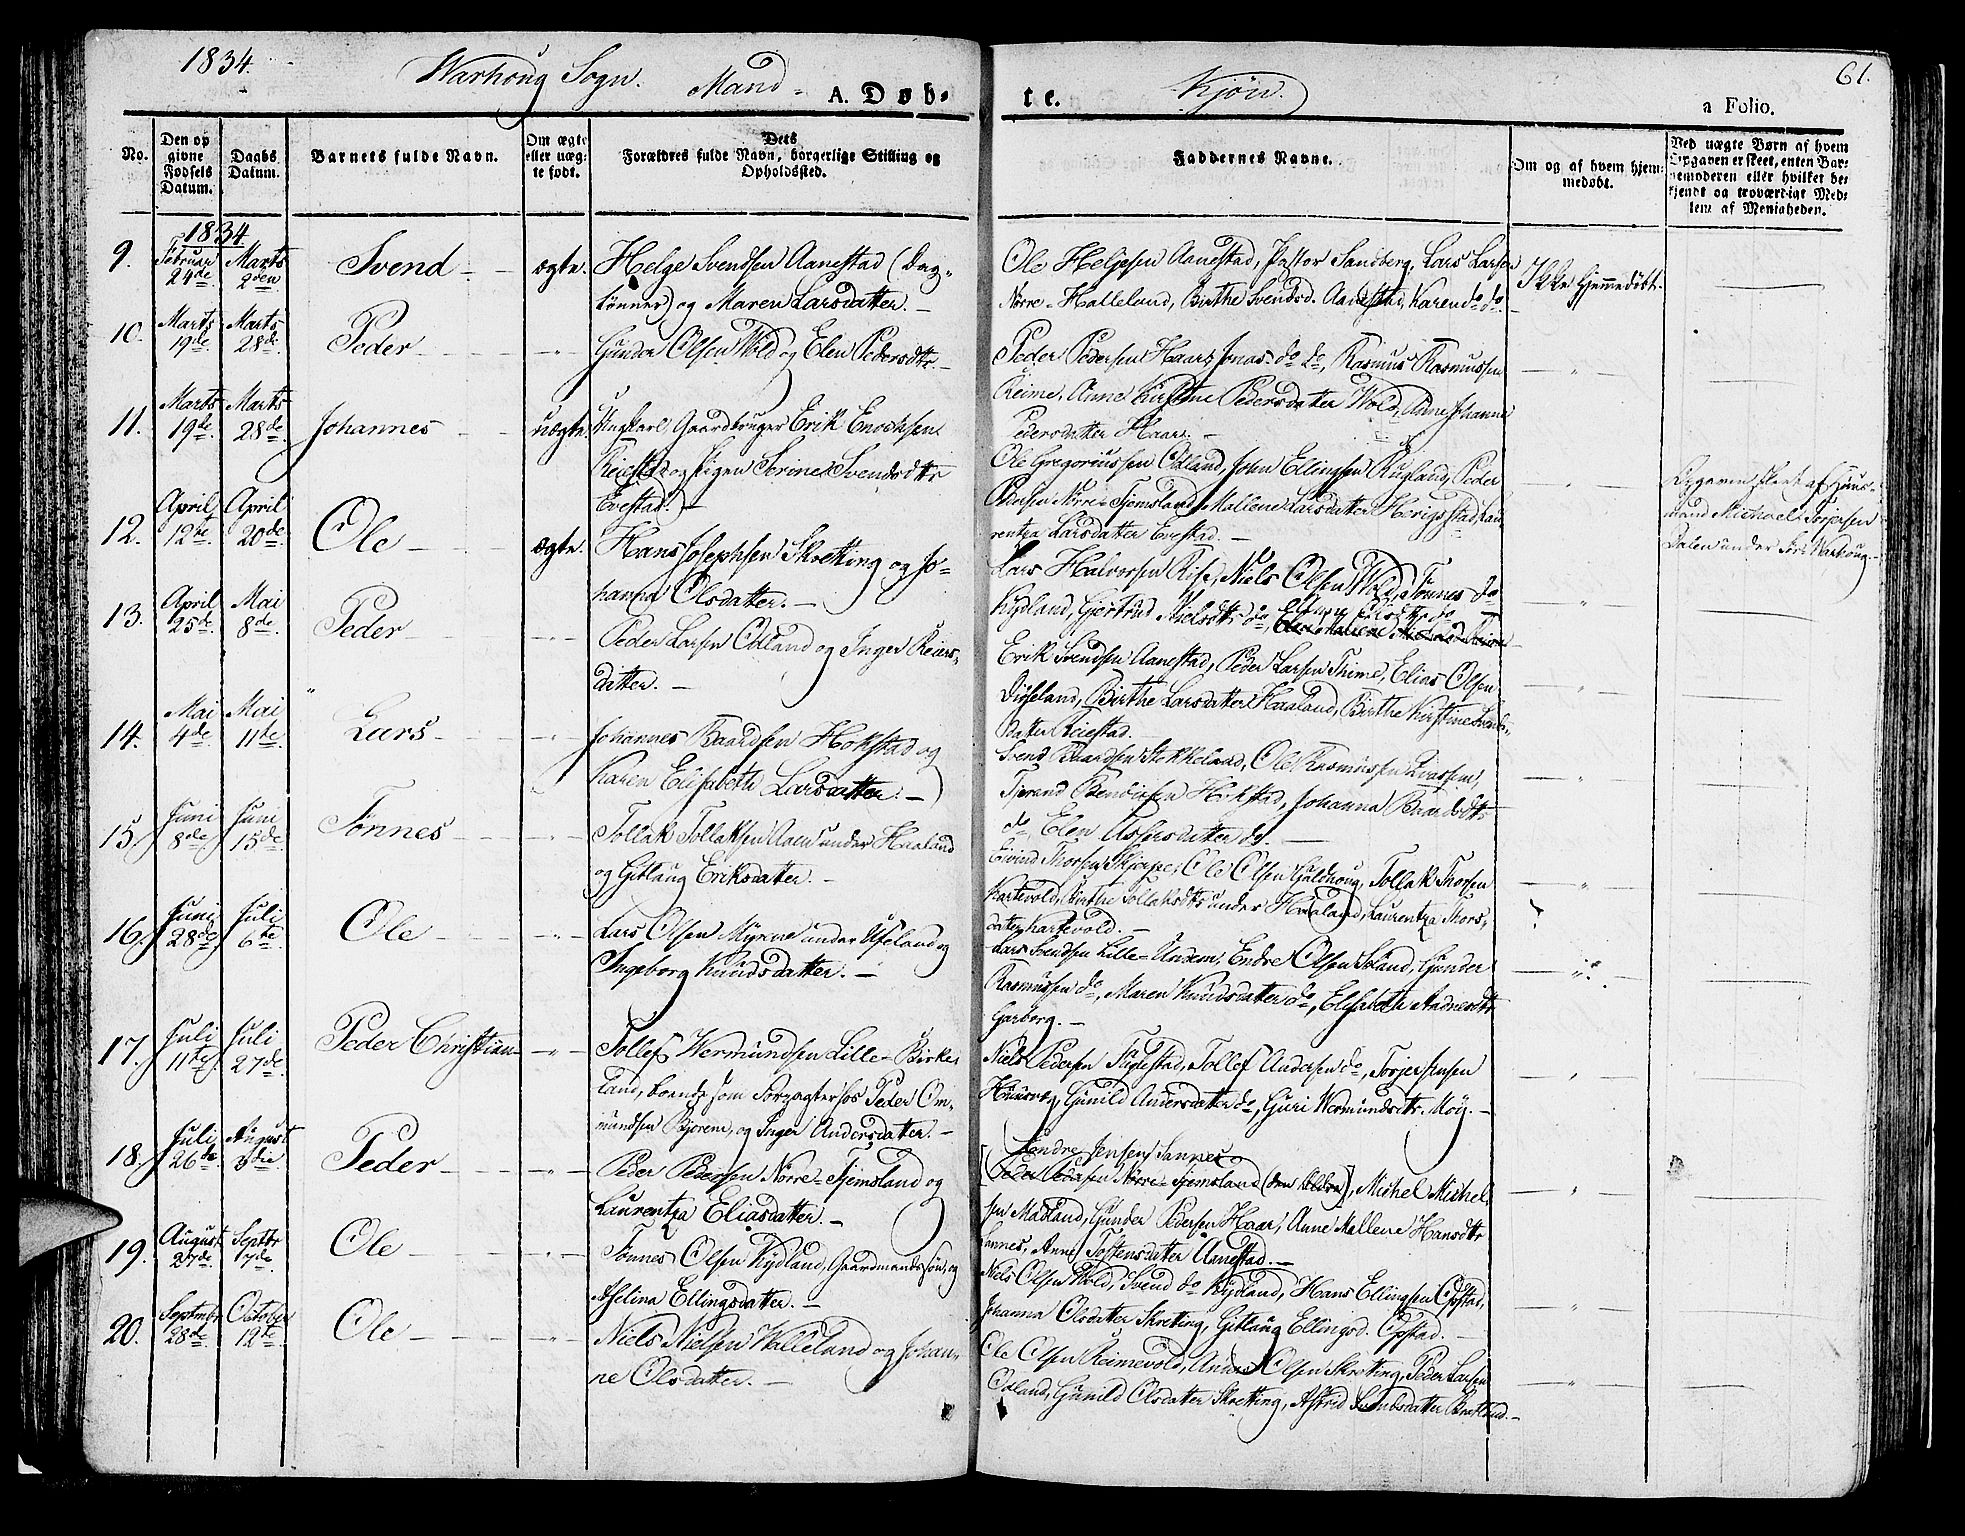 1834.
Warhoug Sogn. Mand- A. Døb-
te. Kjøn.
61.
a Folio.
No.
Den op
givne
Fødsels
Datum.
Daabs
Datum.
Barnets fulde Navn.
Om ægte
eller uæg-
te født.
Dets
Forældres fulde Navn, borgerlige Stilling og
Opholdssted.
Faddernes Navne.
Om og af hvem hjem-
medøbt.
Ved uægte Børn af hvem
Opgaven er skeet, enten Bar-
nemoderen eller hvilket be-
kjendt og troværdigt Med-
lem af Menigheden.
1834
9. Februar 24de Marts 2den Svend ægte. Helge Svendsen Aanestad (Dag-
lønner) og Maren Larsdatter.
Ole Helgesen Aanestad, Pastor Sandberg, Lars Larsen
Nørre-Halleland, Birthe Svendsd. Aanestad, Karen do do.
Ikke hjemmedøbt.
10. Marts 19de Marts 28de Peder -"- Gunder Olsen Wold og Elen Pedersdtr.
Peder Pedersen Haar, Jonas do do, Rasmus Rasmussen
Reime, Anne Kirstine Pedersdatter Wold, Anne Johanne
Pedersdatter Haar.
11. Marts 19de Marts 28de Johannes uægte. Ungkarl Gaardbruger Erik Enochsen
Reiestad og Pigen Serine Svendsdtr
Evestad.
Ole Gregoriussen Odland, John Ellingsen Rugland, Peder
Pedersen Nørre-Tjemsland, Mallene Larsdatter Høvigstad, Lau-
rentza Larsdatter Evestad.
Opgaven skeet af Huus-
mand Michael Torjersen
Dalen under Warhoug.
12. April 12te April 20de Ole ægte. Hans Josephsen Skretting og Jo-
hanna Olsdatter.
Lars Halvorsen Rise, Niels Olsen Wold, Tønnes do
Kydland, Gjertrud Nielsdtr do,
13. April 25de Mai 8de Peder -"- Peder Larsen Odland og Inger Reiers-
datter.
Erik Svendsen Aanestad, Peder Larsen Thime, Elias Olsen
Diseland, Birthe Larsdatter Haaland, Birthe Kirstine Svends-
datter Reiestad.
14. Mai 4de Mai 11te Lars -"- Johannes Baardsen Hokstad og
Karen Elisabeth Larsdatter.
Svend Baardsen Stokkeland, Ole Rasmussen
Tjerand Bendixen Hokstad, Johanna Baardsdtr
do, Elen Assersdatter do.
15. Juni 8de Juni 15de Tønnes -"- Tollak Tollaksen Aaen under Haaland
og Gitlaug Eriksdatter.
Eivind Thorsen Skjerpe, Ole Olsen Galdhoug, Tollak Thorsen
Kartevold, Birthe Tollaksdtr under Haaland, Laurentza Thors-
datter Kartevold.
16. Juni 28de Juli 6te Ole -"- Lars Olsen Myrene under Ueland og
Ingeborg Knudsdatter.
Lars Svendsen Lille-Undem, Endre Olsen Skand, Gunder
Rasmussen do, Maren Knudsdatter do, Elisabeth Andreasdtr
Garborg.
17. Juli 11te Juli 27de Peder Christian -"- Tollef Wermundsen Lille-Birke-
land, boende som Forpagter hos Peder Om-
mundsen Bjorene, og Inger Andersdatter.
Niels Pedersen Fuglestad, Tollef Andersen do, Torjer Jensen
Gunild Andersdatter do, Guri Wermundsdtr. Moy.
18. Juli 26de August 3die Peder -"- Peder Pedersen Nørre-Tjemsland og
Laurentza Eliasdatter.
Sandre Jensen Sannes
(Peder Pedersen Nørre-Tjemsland (den Ældre)), Michel Michel-
sen Madland, Gunder Pedersen Haar, Anne Mallene Hansdtr
Sannes, Anne Tostensdatter Aanestad.
19. August 27de Septbr 7de Ole -"- Tønnes Olsen Kydland, Gaardmandssøn, og
Aselina Ellingsdatter.
Niels Olsen Wold, Svend do Kydland, Hans Ellingsen Opstad,
Johanna Olsdatter Skretting, Gitlaug Ellingsd. Opstad.
20. Septembr 28de October 12te Ole -"- Niels Nielsen Walleland og Johan-
ne Olsdatter.
Ole Olsen Reimevold, Anders Olsen Skretting, Peder Larsen
Odland, Gunild Olsdatter Skretting, Astrid